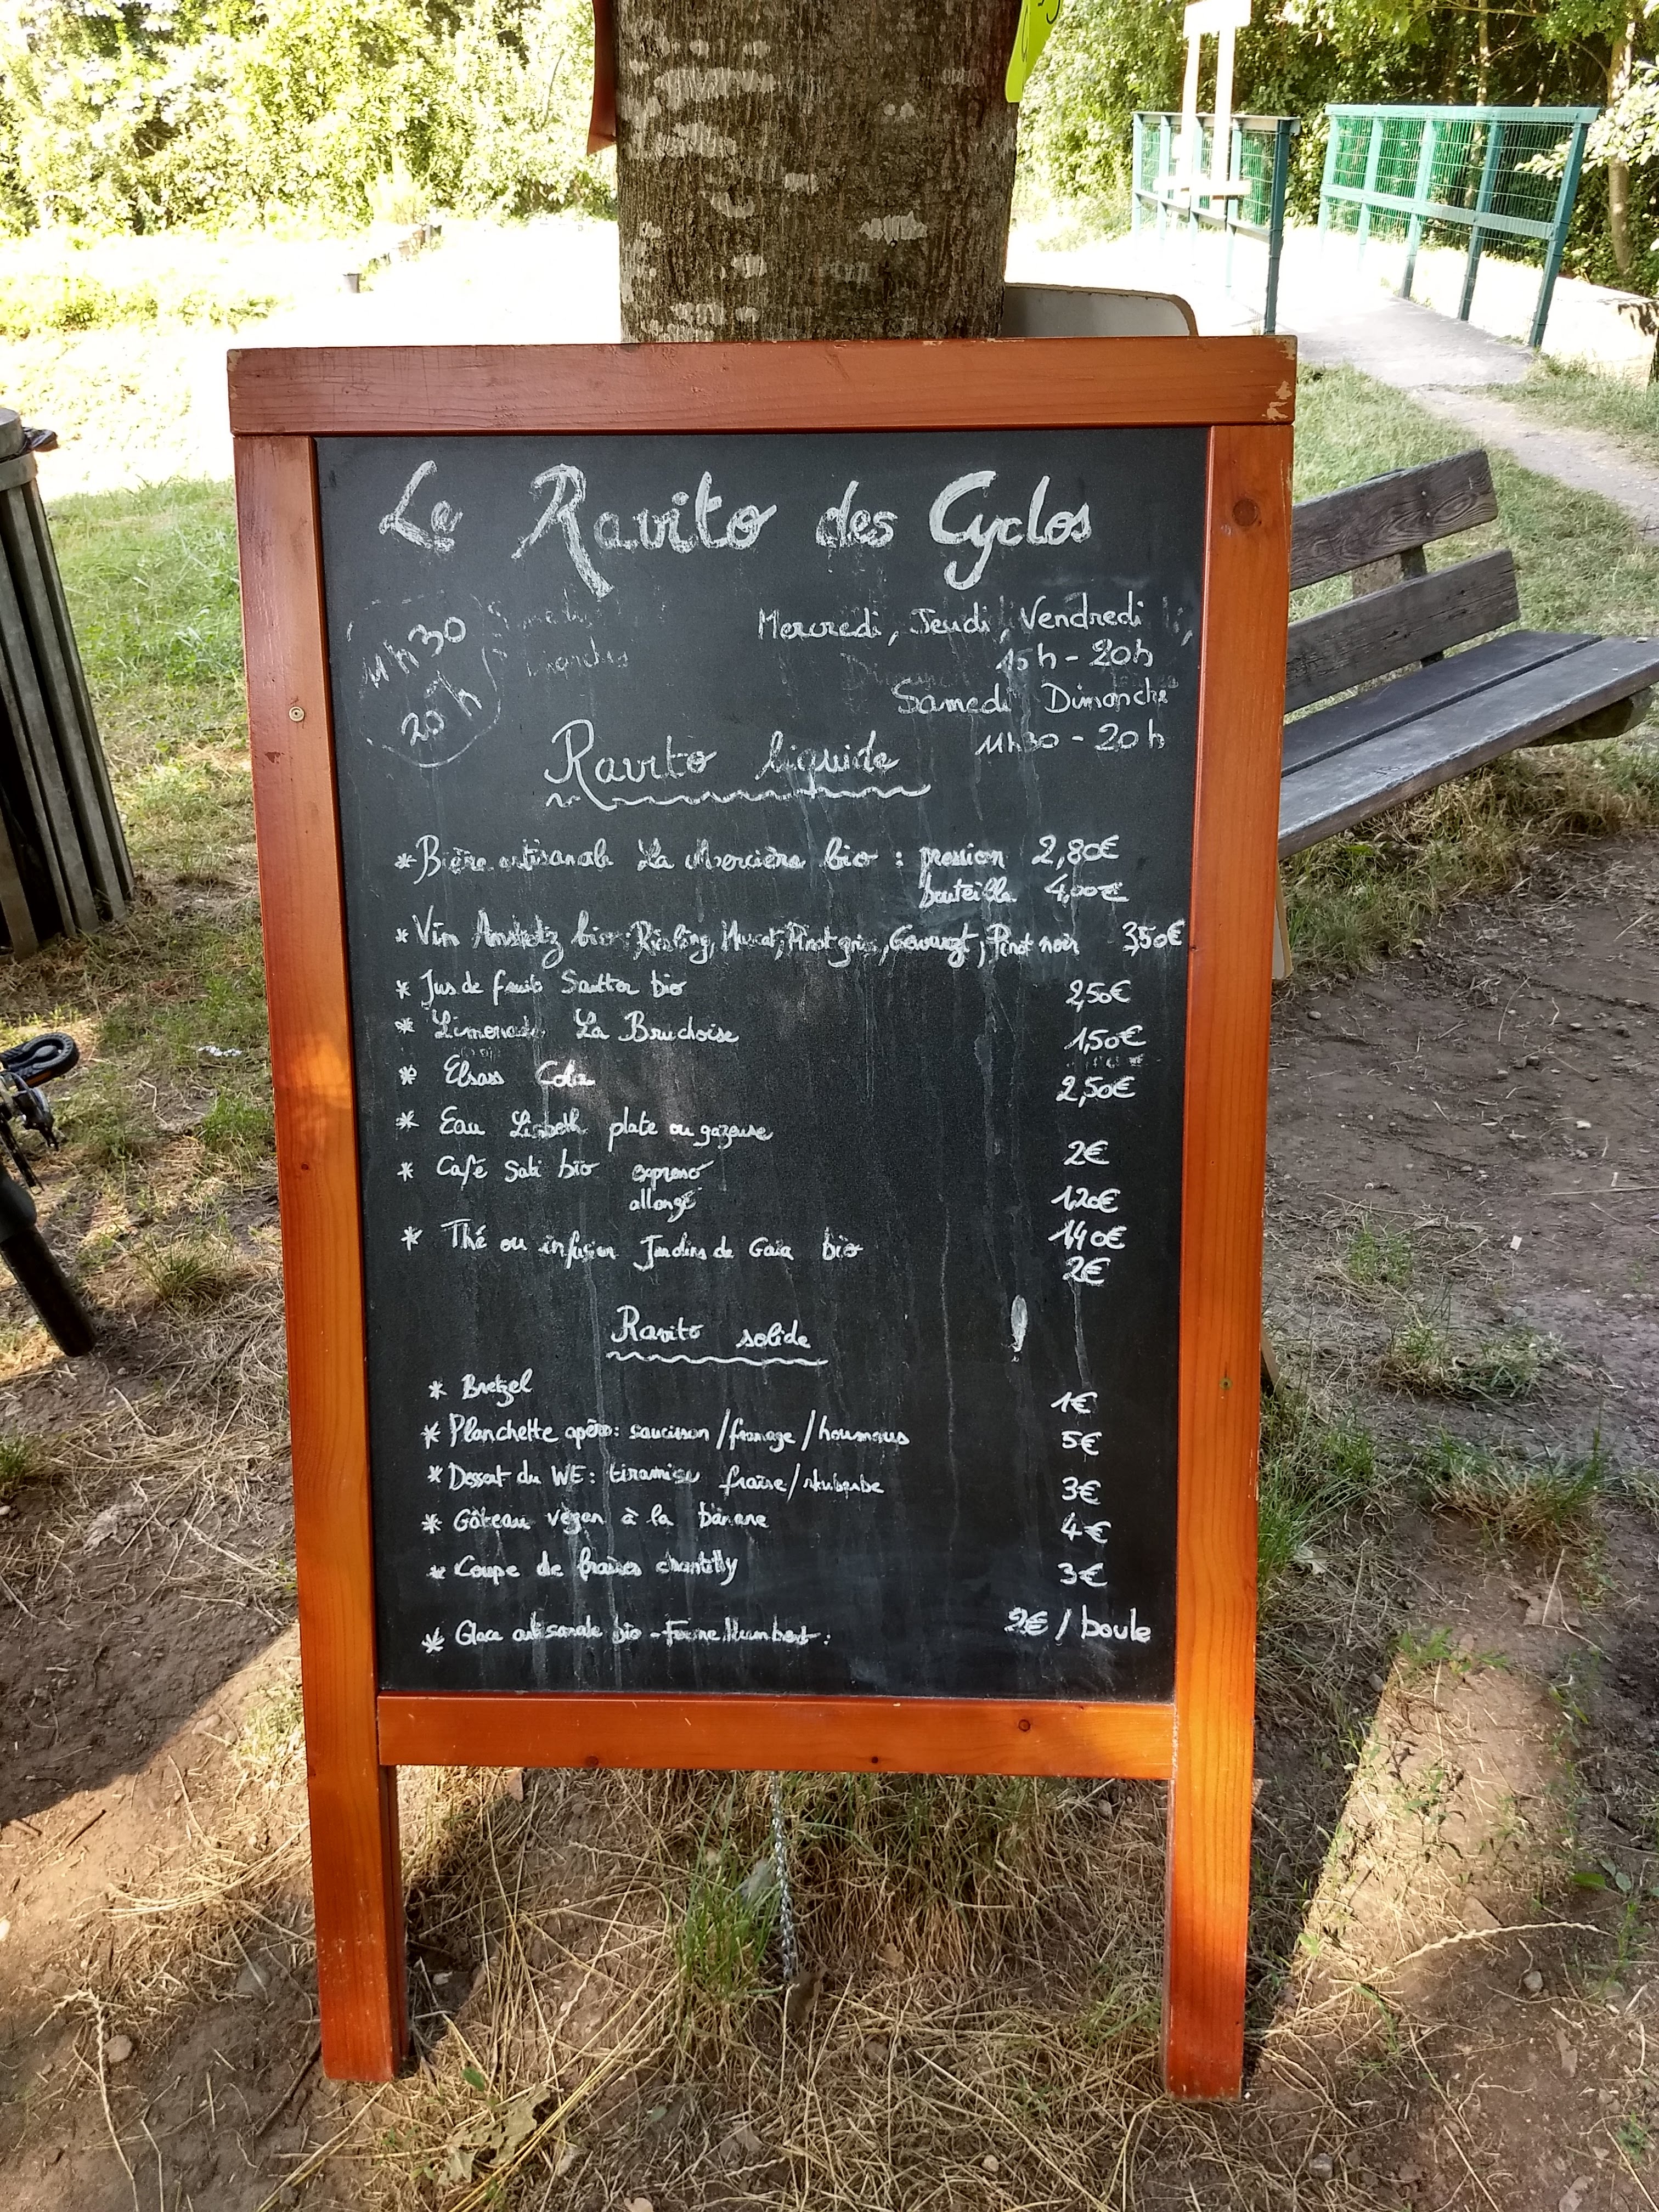 Le Ravito des Cyclos
11h30
20h
Mercredi, Jeudi, Vendredi
15h - 20h
Samedi Dimanche
11h30 - 20h
Ravito liquide
* Bière artisanale La Mercière bio : pression 2,80€
bouteille 4,00€
* Vin Anstotz bio: Riesling, Muscat, Pinot gris, Gewurzt, Pinot noir 3,50€
* Jus de fruits Sautter bio 2,50€
* Limonade La Bruchoise 1,50€
* Elsass Cola 2,50€
* Eau Lisbeth plate ou gazeuse 2€
* Café Sati bio expresso 1,20€
allongé 1,40€
* Thé ou infusion Jardins de Gaïa bio 2€
Ravito solide
* Bretzel 1€
* Planchette apéro: saucisson/fromage/houmous 5€
* Dessert du WE: tiramisu fraise/rhubarbe 3€
* Gâteau végan à la banane 4€
* Coupe de fraises chantilly 3€
* Glace artisanale bio - Ferme Humbert : 2€ / boule